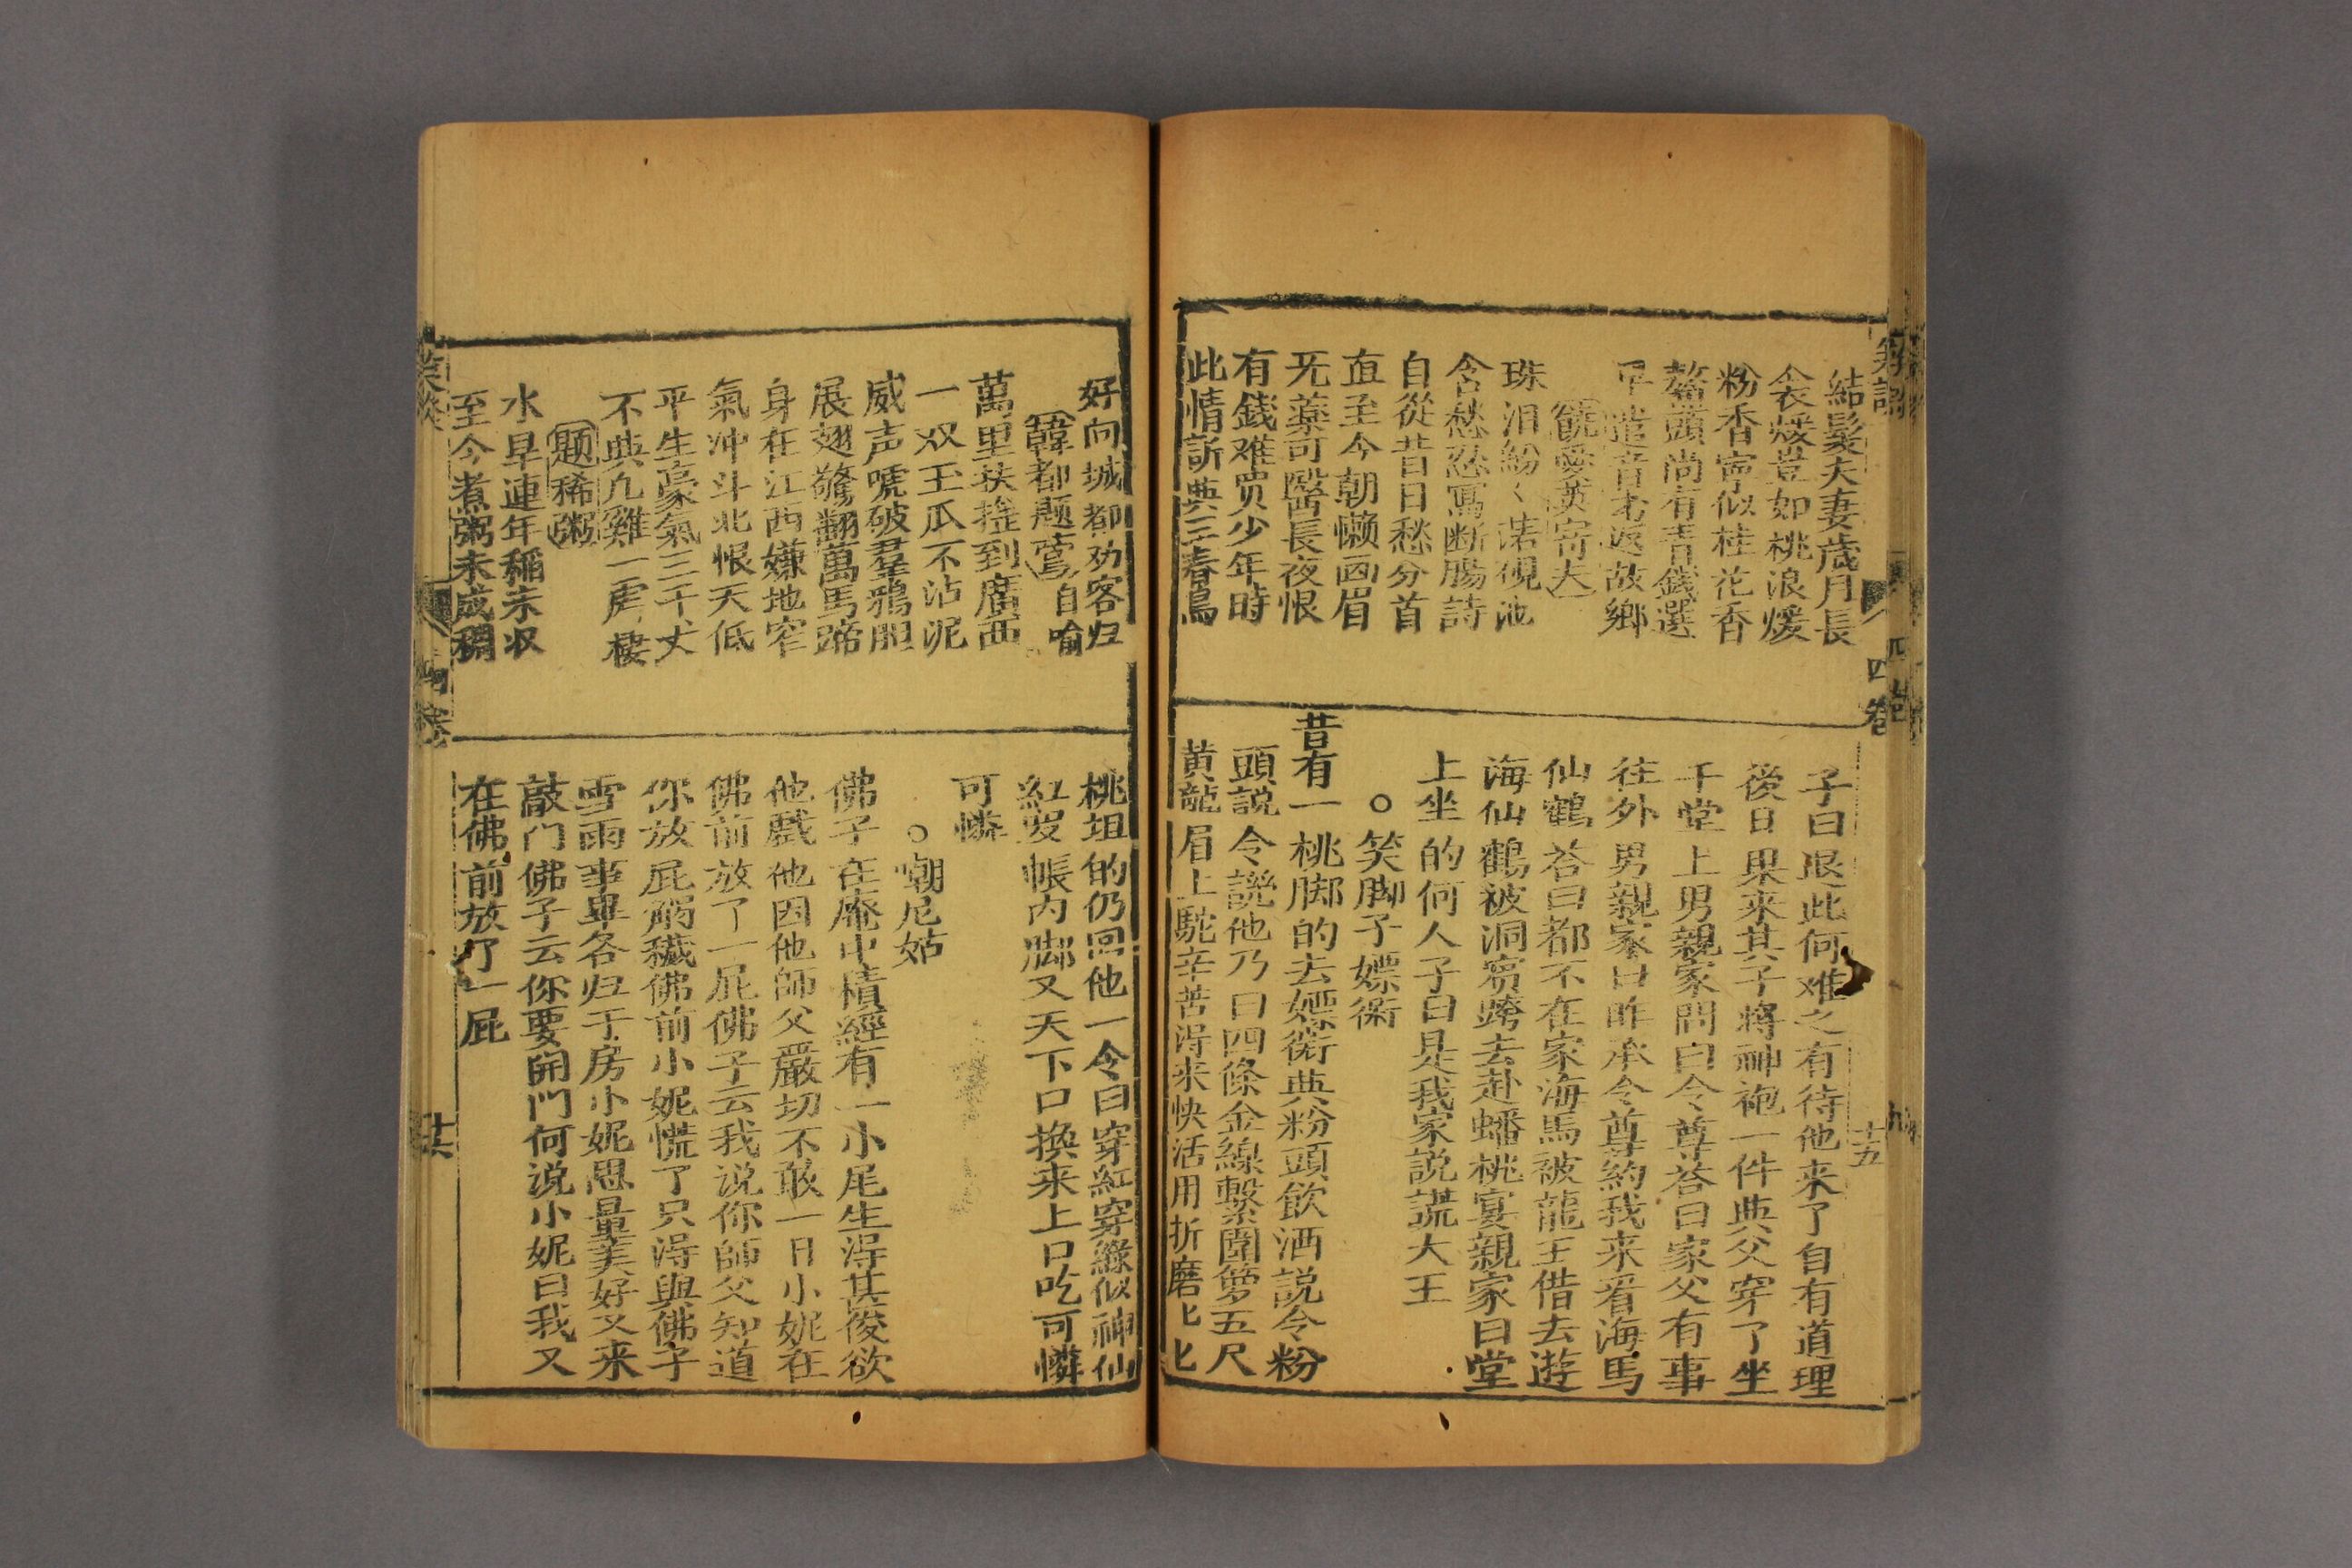 結髮夫妻歲月長
衾煖豈如桃浪煖
粉香寧似桂花香
鰲頭尚有青錢選
早遣音書返故鄉
愛英寄夫
珠泪紛〻落硯池
含愁忍寫断腸詩
自從昔日愁分首
直至今朝懒画眉
无藥可醫長夜恨
有錢难買少年時
此情訴與三春鳥
子曰退此何难之有待他来了自有道理
後日果来其子將神袍一件與父穿了坐
于堂上男親家問曰令尊荅曰家父有事
往外男親家曰昨承令尊約我来看海馬
仙鶴荅曰都不在家海馬被龍王借去遊
海仙鶴被洞賓跨去赴蟠桃宴親家曰堂
上坐的何人子曰是我家説謊大王
○笑脚子嫖衏
昔有一桃脚的去嫖衏與粉頭飲酒説令粉
頭説令譏他乃曰四條金線繫圍籮五尺
黄龍眉上駝辛苦淂来快活用折磨匕匕
四卷
十五
好向城都劝客归
韓都题鶯自喻
萬里扶搖到廣西
一双玉爪不沾泥
威声唬破羣鴉胆
展翅驚翻萬馬蹄
身在江西嫌地窄
氣冲斗北恨天低
平生豪氣三千丈
不與凢雞一處棲
题稀粥
水旱連年稲未収
至今煮粥未成稠
桃坦的仍回他一令曰穿紅穿綠似神仙
紅罗帳内脚又天下口換来上口吃可憐
可憐
○嘲尼姑
佛子在庵中積經有一小尾生淂甚俊欲
他戲他因他師父嚴切不敢一日小妮在
佛前放了一屁佛子云我说你師父知道
你放屁觸穢佛前小妮慌了只淂與佛子
雲雨事畢各归于房小妮思量美好又来
敲门佛子云你要開門何说小妮曰我又
在佛前放了一屁
四卷